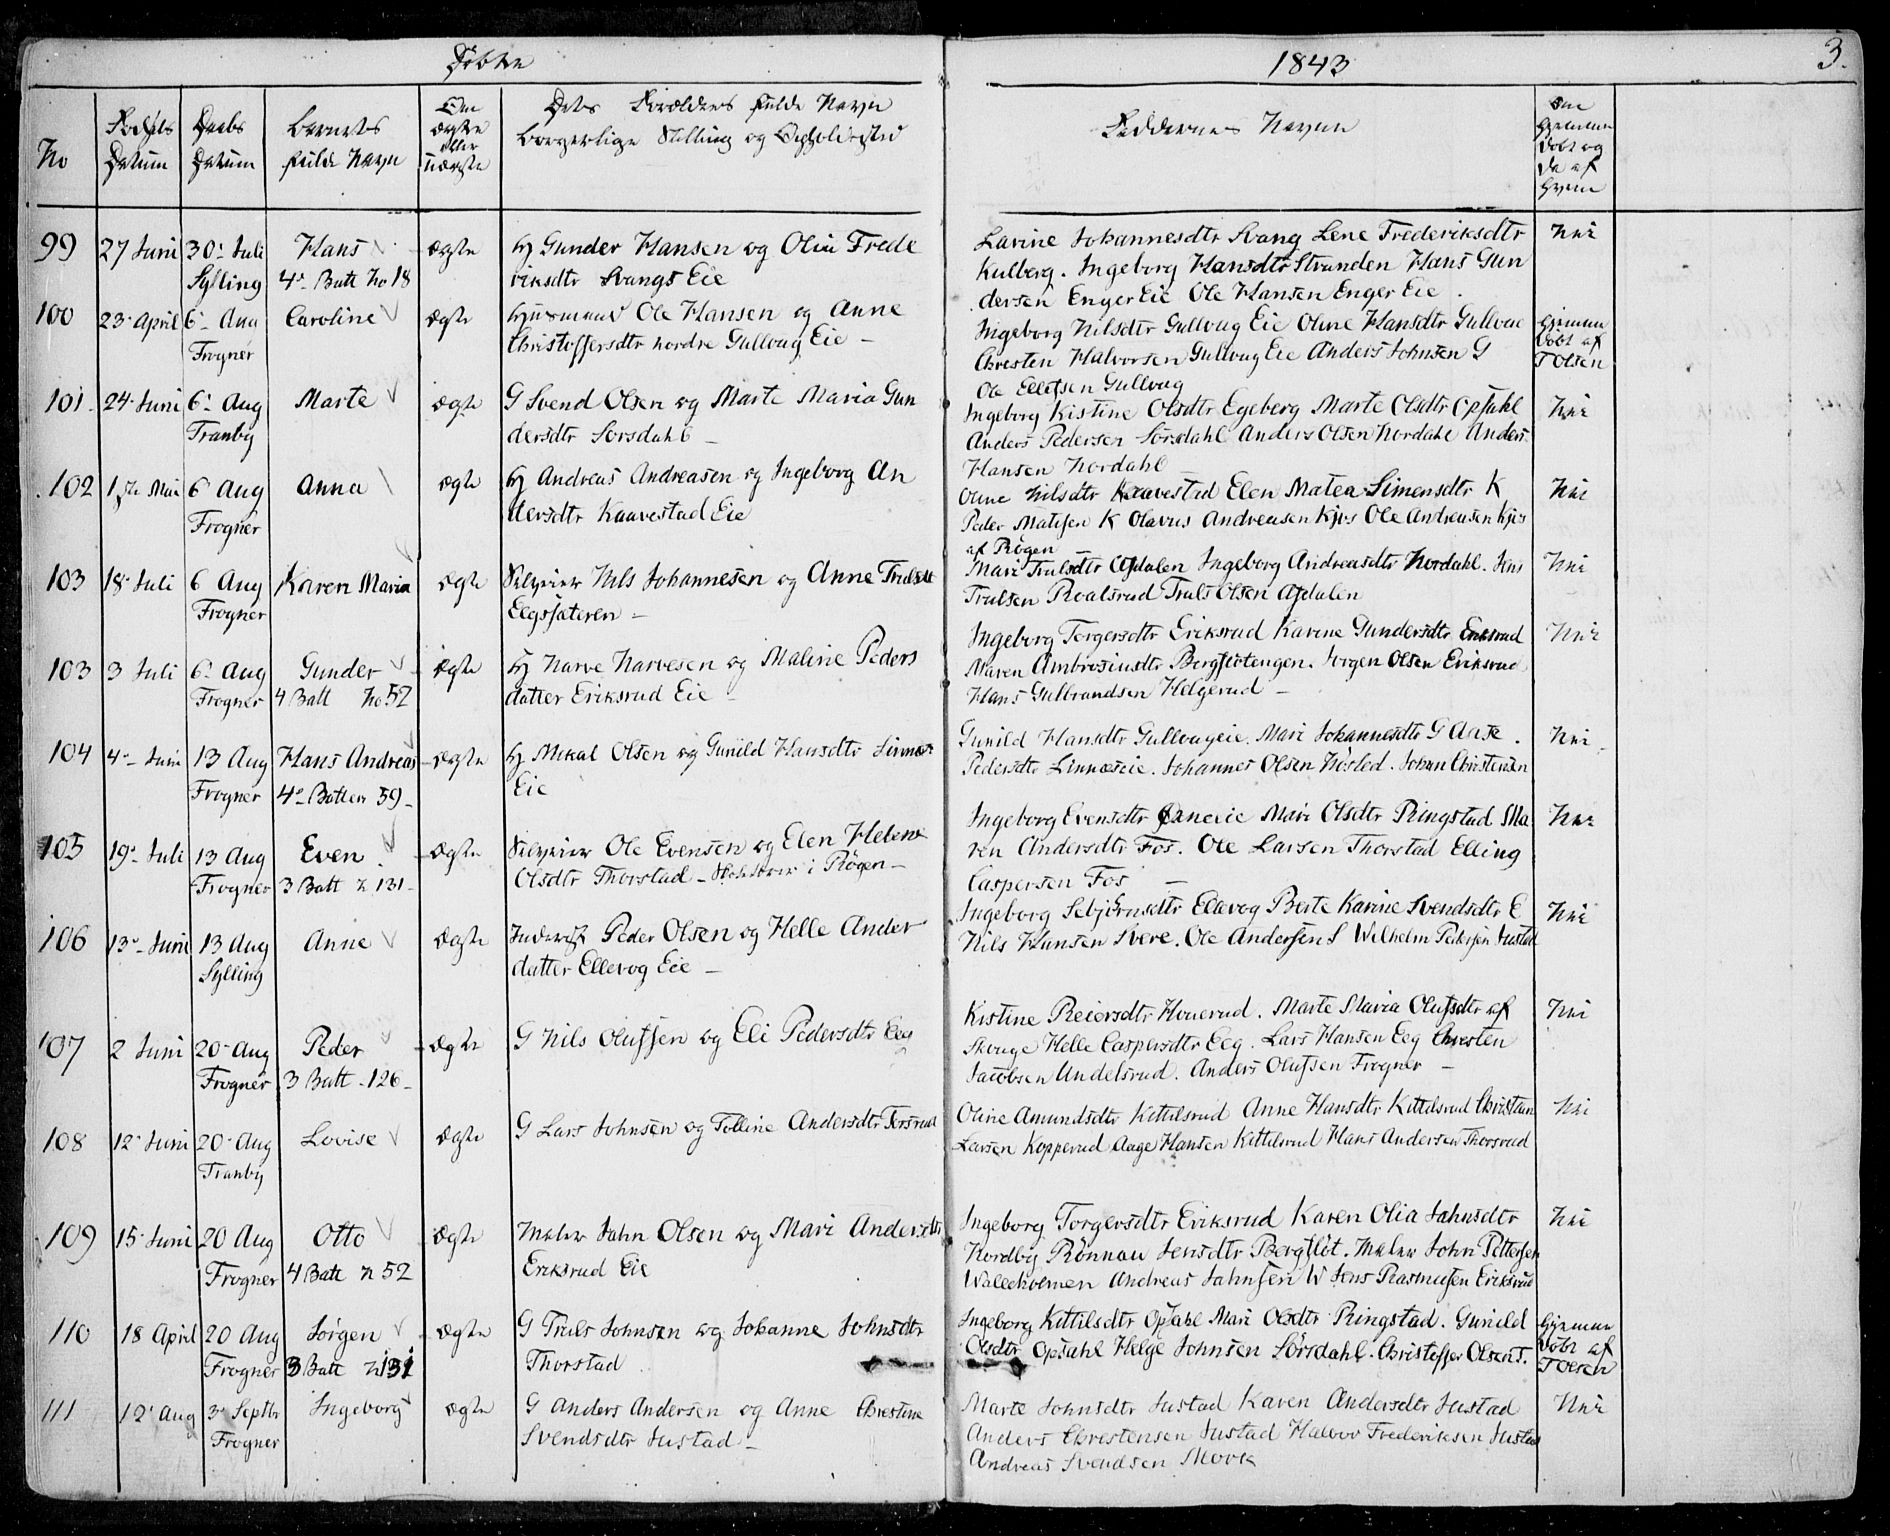 Døbte
1843
3.
No
Fødsels Datum
Daabs Datum
Barnets fulde Navn
Om ægte eller uægte
Dets Forældres fulde Navn
borgerlige Stilling og Opholdssted
Faddernes Navne
Om hjemmedøbt og da af Hvem
99 27 Juni 30 Juli Hans ægte Hj Gunder Hansen og Olia Frede
Sylling 4 Batt No 18 riksdtr Svangs Eie
Lavine Johannesdtr Svang Lene Frederiksdtr Nei
Kulberg. Ingeborg Hansdtr Stranden Hans Gun
dersen Enger Eie Ole Hansen Enger Eie.
100 23 April 6 Aug Caroline ægte Husmand Ole Hansen og Anne
Frogner Christoffersdtr nordre Gullaug Eie –
Ingeborg Nilsdtr Gullaug Eie Oline Hansdtr Gullaug hjemme
Christen Halvorsen Gullaug Eie Anders Johnsen G døbt af
Ole Ellefsen Gullaug T Olsen
101 24 Juni 6 Aug Marte ægte G Svend Olsen og Marte Maria Gun
Tranby dersdtr Sørsdahl –
Ingeborg Kistine Olsdtr Egeberg Marte Olsdtr Opsahl Nei
Anders Pedersen Sørsdahl Anders Olsen Nordahl Anders
Hansen Nordahl
102 1ste Mai 6 Aug Anna ægte Hj Andreas Andreasen og Ingeborg An
Frogner dersdtr Kaavestad Eie
Oline Nilsdtr Kaavestad Elen Matea Simensdtr K Nei
Peder Matisen K Olavus Andreasen Kjos Ole Andreasen Kjos
af Røgen –
103 18 Juli 6 Aug Karen Maria ægte Selveier Nils Johannesen og Anne Trulsdtr
Frogner Eegssæteren –
Mari Trulsdtr Asdalen Ingeborg Andreasdtr Nordahl. Jens Nei
Trulsen Roalsrud Truls Olsen Asdalen
103 3 Juli 6 Aug Gunder ægte Hj Narve Narvesen og Maline Peders
Frogner 4 Batt No 52 datter Eriksrud Eie –
Ingeborg Torgersdtr Eriksrud Karine Gundersdtr Eriksrud Nei
Maren Ambrosiusdtr Bergfløtengen. Jørgen Olsen Eriksrud
Hans Gulbrandsen Helgerud –
104 4 Juni 13 Aug Hans Andreas ægte Hj Mikal Olsen og Gunild Hansdtr Linnæs
Frogner 4 Batten 59 Eie
Gunild Hansdtr Gullaugeie. Mari Johannesdtr G Aase. Nei
Pedersdtr Linnæseie. Johannes Olsen Høsled. Johan Christensen
105 19 Juli 13 Aug Even ægte Selveier Ole Evensen og Elen Helene
Frogner 3 Batt N 131 Olsdtr Thorstad – Skoleholder i Røgen –
Ingeborg Evensdtr Mari Olsdtr Ringstad Ma Nei
ren Andersdtr Fos. Ole Larsen Thorstad Elling
Caspersen Fos –
106 13 Juni 13 Aug Anne ægte Inderst Peder Olsen og Helle Anders
Sylling datter Ellevog Eie –
Ingeborg Sebjørnsdtr Elevog Berte Karine Svendsdtr E Nei
Nils Hansen Svere. Ole Andersen S Wilhelm Pedersen Justad
107 2 Juni 20 Aug Peder ægte G Nils Olufsen og Eli Pedersdtr Eeg
Frogner 3 Batt 126
Kistine Reiersdtr Houerud. Marte Maria Olufsdtr af Nei
Skouge Helle Caspersdtr Eeg. Lars Hansen Eeg Christen
Jacobsen Undelsrud. Anders Olufsen Frogner –
108 12 Juni 20 Aug Lovise ægte G Lars Johnsen og Tolline Andersdtr Torsrud
Tranby
Oline Amundsdtr Kittilsrud Anne Hansdtr Kittilsrud Christian Nei
Larsen Kopperud Aage Hansen Kittilsrud Hans Andersen Thorsrud
109 15 Juni 20 Aug Otto ægte Maler John Olsen og Mari Andersdtr
Frogner 4 Batt N 52 Eriksrud Eie
Ingeborg Torgersdtr Eriksrud Karen Olia Johnsdtr Nei
Nordby Rønnau Jensdtr Bergfløt. Maler John Pettersen
Walleholmen Andreas Johnsen W Jens Rasmussen Eriksrud
110 18 April 20 Aug Jørgen ægte G Truls Johnsen og Johanne Johnsdtr
Frogner 3 Batt N 131 Thorstad
Ingeborg Kittilsdtr Opsahl Mari Olsdtr Ringstad. Gunild hjemme
Olsdtr Opsahl Helge Johnsen Sørsdahl. Christoffer Olsen T. døbt af
T Olsen
111 12 Aug 3 Septbr Ingeborg ægte G Anders Andersen og Anne Christine
Frogner Svendsdtr Justad –
Marte Johnsdtr Justad Karen Andersdtr Justad Nei
Anders Christensen Justad Halvor Frederiksen Justad
Andreas Svendsen Mørk